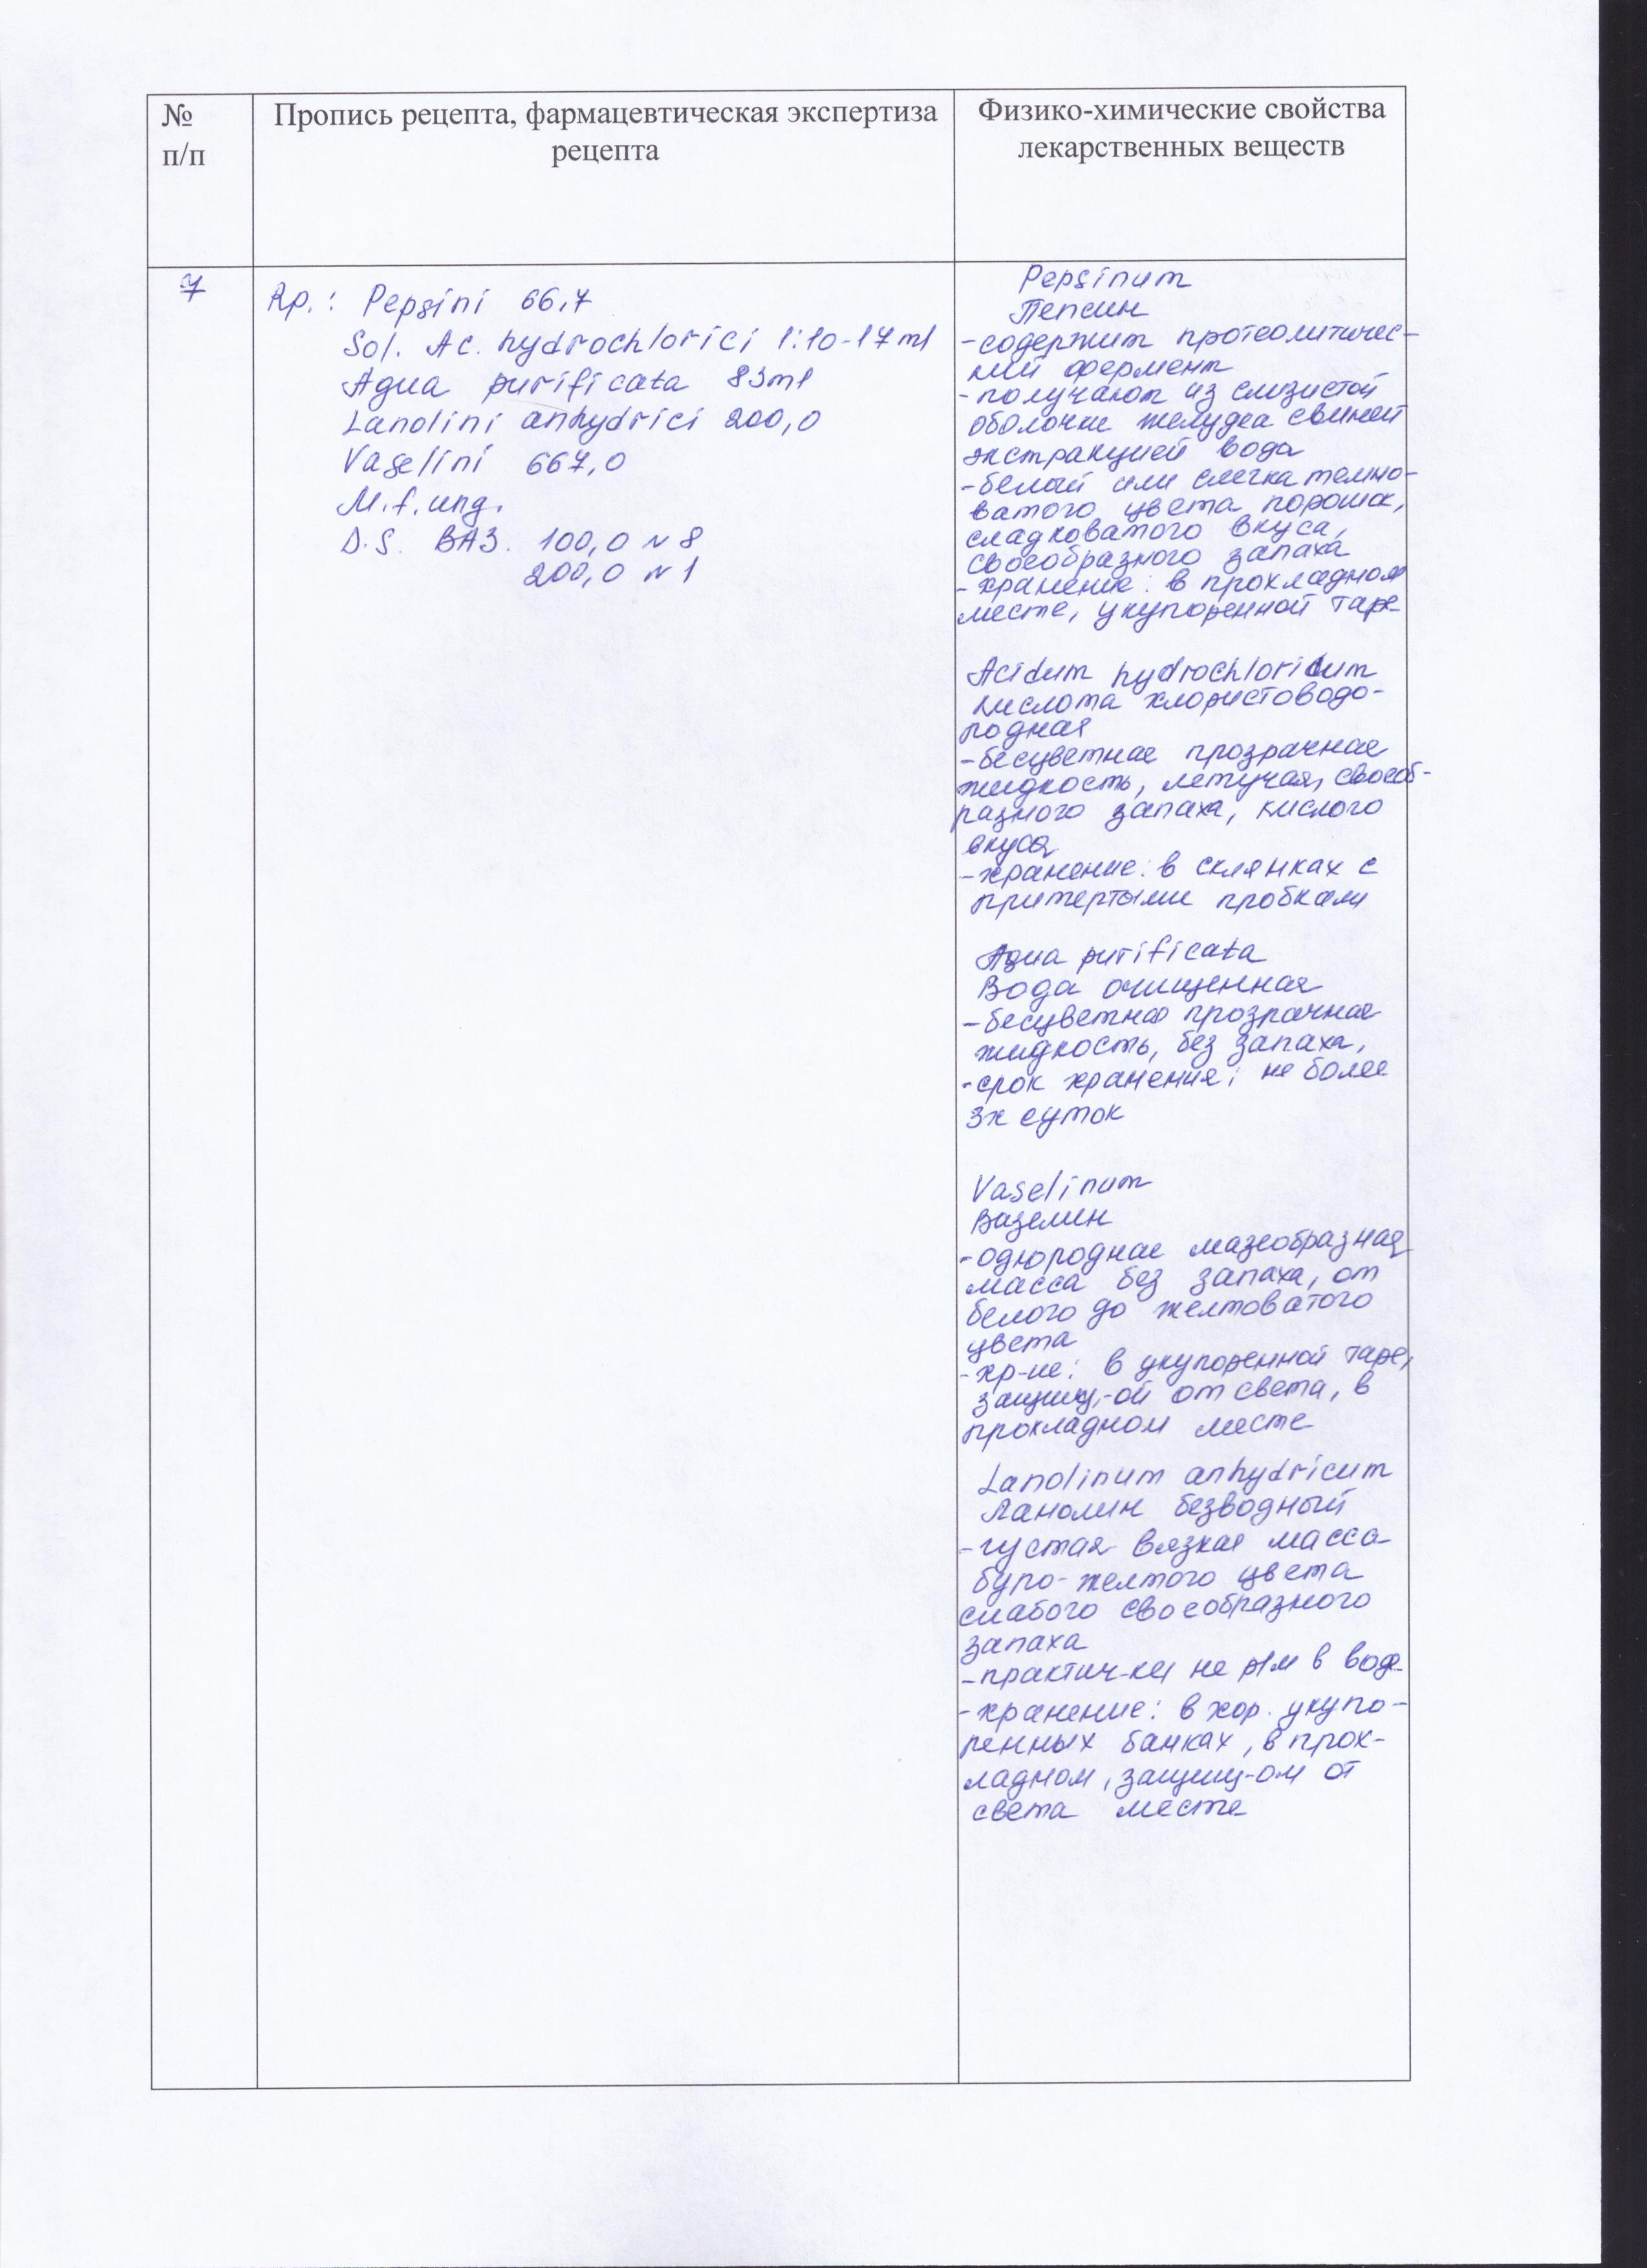 №
п/п
Пропись рецепта, фармацевтическая экспертиза
рецепта
Физико-химические свойства
лекарственных веществ
7
Rp.: Pepsini 66,7
Sol. Ac. hydrochlorici 1:10-17ml
Aqua purificata 83ml
Lanolini anhydrici 200,0
Vaselini 667,0
M.f.ung.
D.S. ВАЗ. 100,0 N 8
200,0 N 1
Pepsinum
Пепсин
-содержит протеолитичес-
кий фермент
-получают из слизистой
оболочки желудка свиней
экстракцией вода
-белый или слегка темно-
ватого цвета порошок,
сладковатого вкуса,
своеобразного запаха
-хранение: в прохладном
месте, укупоренной таре
Acidum hydrochloricum
Кислота хлористоводо-
родная
-бесцветная прозрачная
жидкость, летучая, своеоб-
разного запаха, кислого
вкуса
-хранение: в склянках с
притертыми пробками
Aqua purificata
Вода очищенная
-бесцветная прозрачная
жидкость, без запаха,
-срок хранения: не более
3х суток
Vaselinum
Вазелин
-однородная мазеобразная
масса без запаха, от
белого до желтоватого
цвета
-хр-ие: в укупоренной таре,
защищ-ой от света, в
прохладном месте
Lanolinum anhydricum
Ланолин безводный
-густая вязкая масса
буро-желтого цвета
слабого своеобразного
запаха
-практич-ки не р/м в воде
-хранение: в хор. укупо-
ренных банках, в прох-
ладном, защищ-ом от
света месте